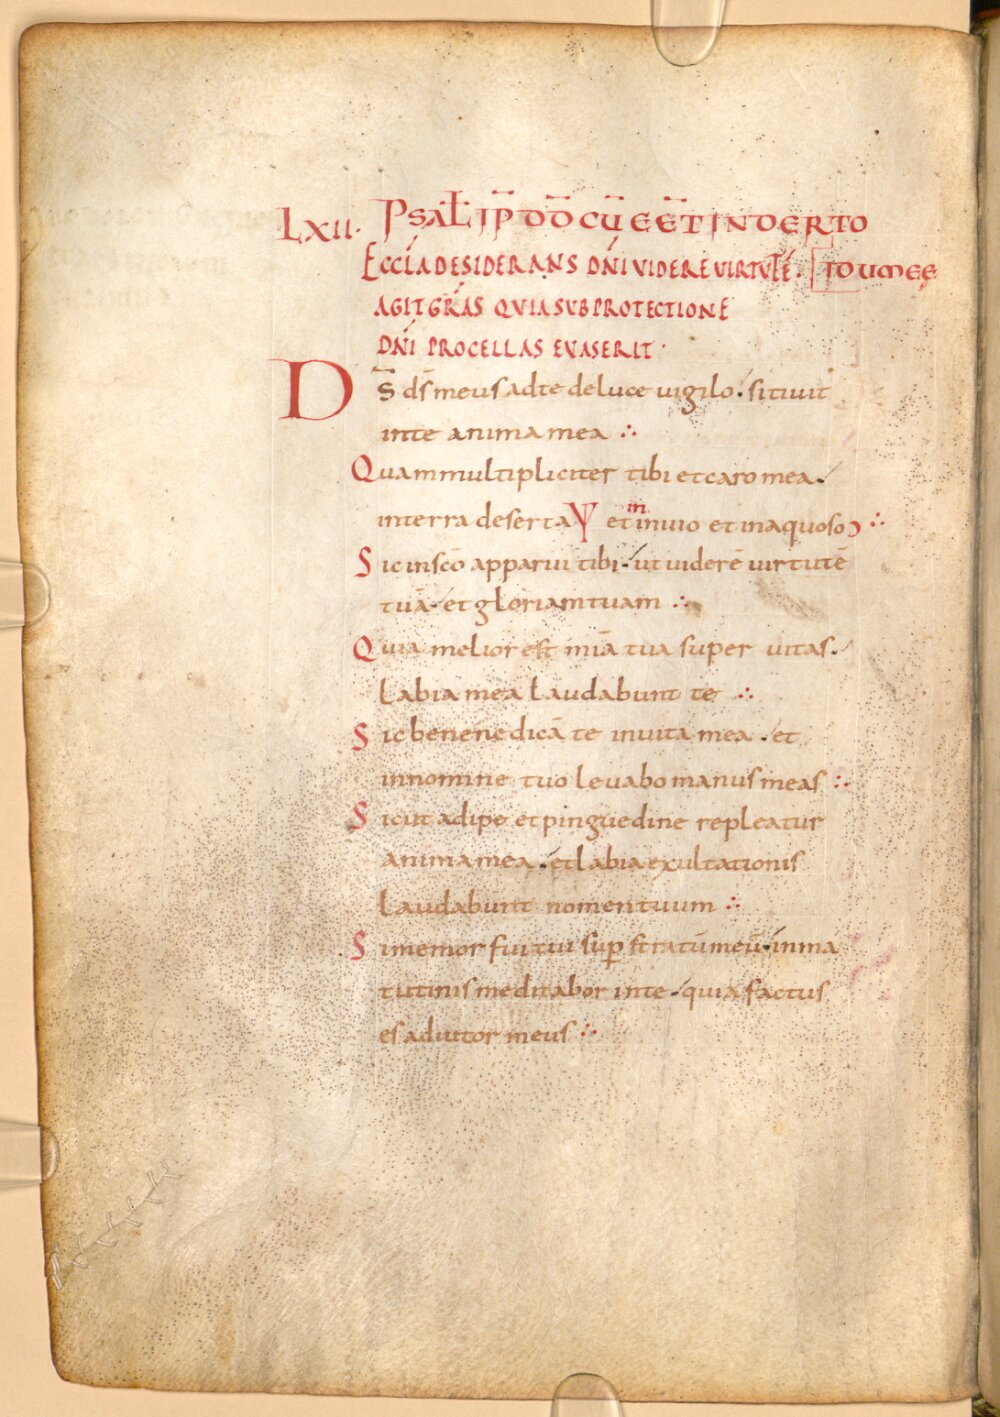 LXII· PSAL̅ IP̅ D̅D̅ CU̅ EE̅T IN DERTO
ECCĹIA DESIDERANS DN̅I VIDERE VIRTUTE̅· IDUMEĘ
AGIT GR̅AS QUIA SUB PROTECTIONE
DN̅I PROCELLAS EVASERIT·
DS̅ ds̅ meus ad te de luce uigilo· sitiuit
in te anima mea ∴
Quam multipliciter tibi et caro mea·
in terra deserta Ѱ et in inuio et inaquoso ∴
Sic in sco̅ apparui tibi· ut uidere̅ uirtute̅
tua̅· et gloriam tuam ∴
Quia melior est mia̅ tua super uitas·
Labia mea laudabunt te ∴
Sic benenedica̅ te in uita mea· et
in nomine tuo leuabo manus meas ∴
Sicut adipe et pinguedine repleatur
anima mea· et labia exultationis
Laudabunt nomen tuum ∴
Si memor fui tui sup̲ stratu̅ meu̅· in ma
tutinis meditabor in te· quia factus
es adiutor meus ∴